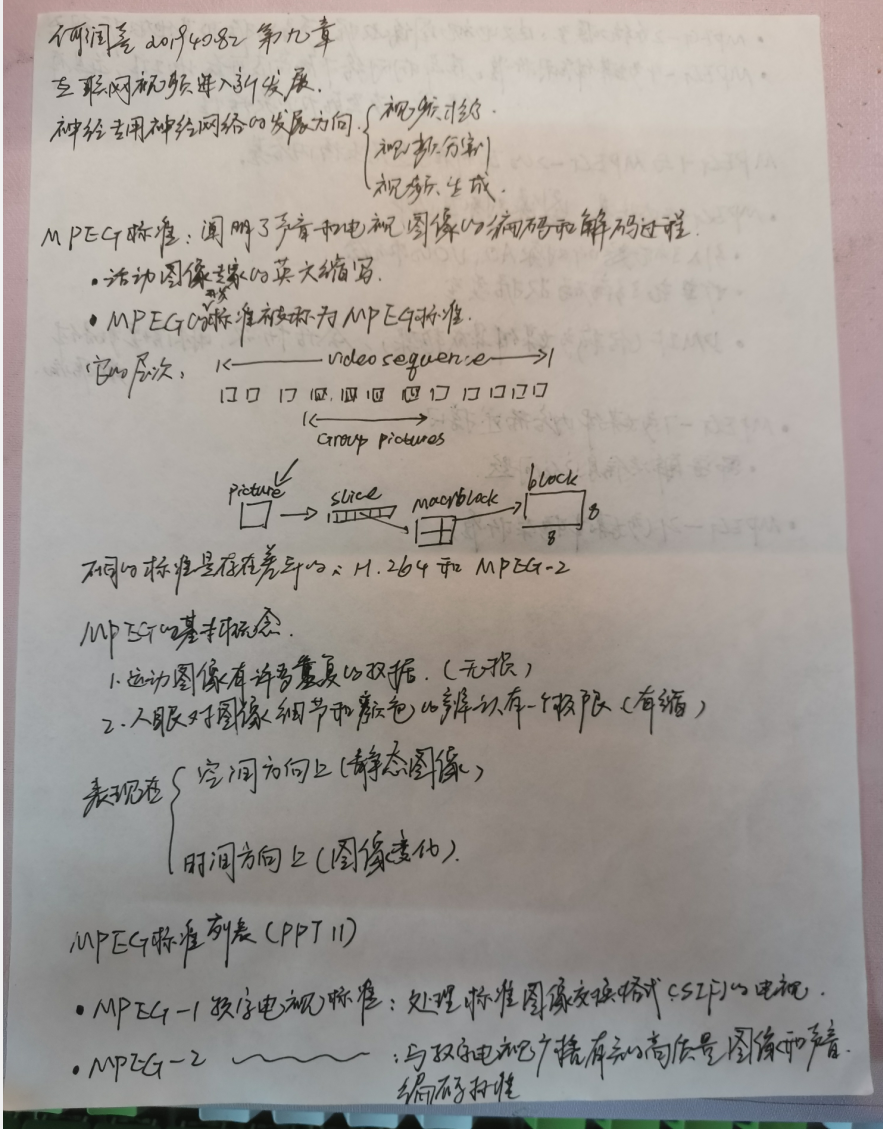 20194082 第九章
互联网视频进入新发展.
神经专用神经网络的发展方向.
视频讨论.
视频分割
视频生成.
MPEG标准：阐明了声音和电视图像的编码和解码过程.
•活动图像专家的英文缩写.
•MPEG的标准被称为MPEG标准.
它的层次：
video sequence
Group pictures
picture
slice
macrblock
block
8
8
不同的标准是存在差异的：H.264 和 MPEG-2
MPEG的基本概念.
1.运动图像有许多重复的数据.（无损）
2.人眼对图像细节和颜色的辨认有一个极限（有缩）
表现在
空间方向上（静态图像）
时间方向上（图像变化）.
MPEG标准列表（PPT 11）
•MPEG-1 数字电视标准：处理标准图像交换格式（SIF）的电视.
•MPEG-2 ：与数字电视广播有关的高质量图像和声音.
编码标准